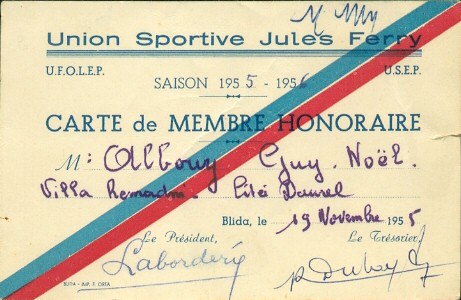 Union Sportive Jules Ferry
U.F.O.L.E.P. U.S.E.P.
SAISON 1955 - 1956
CARTE de MEMBRE HONORAIRE
M: Albouy Guy. Noël.
Villa Remadni. Cité Daurel
Blida, le 19 Novembre 1955
Le Président, Le Trésorier,
Laborderie
BLIDA - IMP. F. ORTA